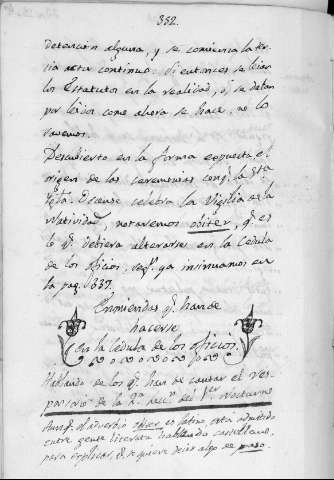 352.
detencion alguna, y se comienza la ter-
cia actu continuo. Si entonces se leian
los Estatutos en la realidad, ó se daban
por leidos como ahora se hace, no lo
sabemos.
Descubierto en la forma expuesta el
origen de las ceremonias conq.e la Sta
Yglã. Escense celebra la Vigilia de la
Natividad, notaremos obiter, q.e es
lo q.e debiera alterarse en la Cedula
de los oficios, seg.n ya insinuamos en
la pag. 337.
Enmiendas q.e han de
hacerse
en la cedula de los oficios.
Hablando de los q.e han de cantar el res-
ponsorio de la 2.a lec.n del 1.er Nocturno
Aunq.e el adverbio obiter es latino, está admitido
entre gente literata hablando castellano,
para explicar, q.e se quiere decir algo de paso.